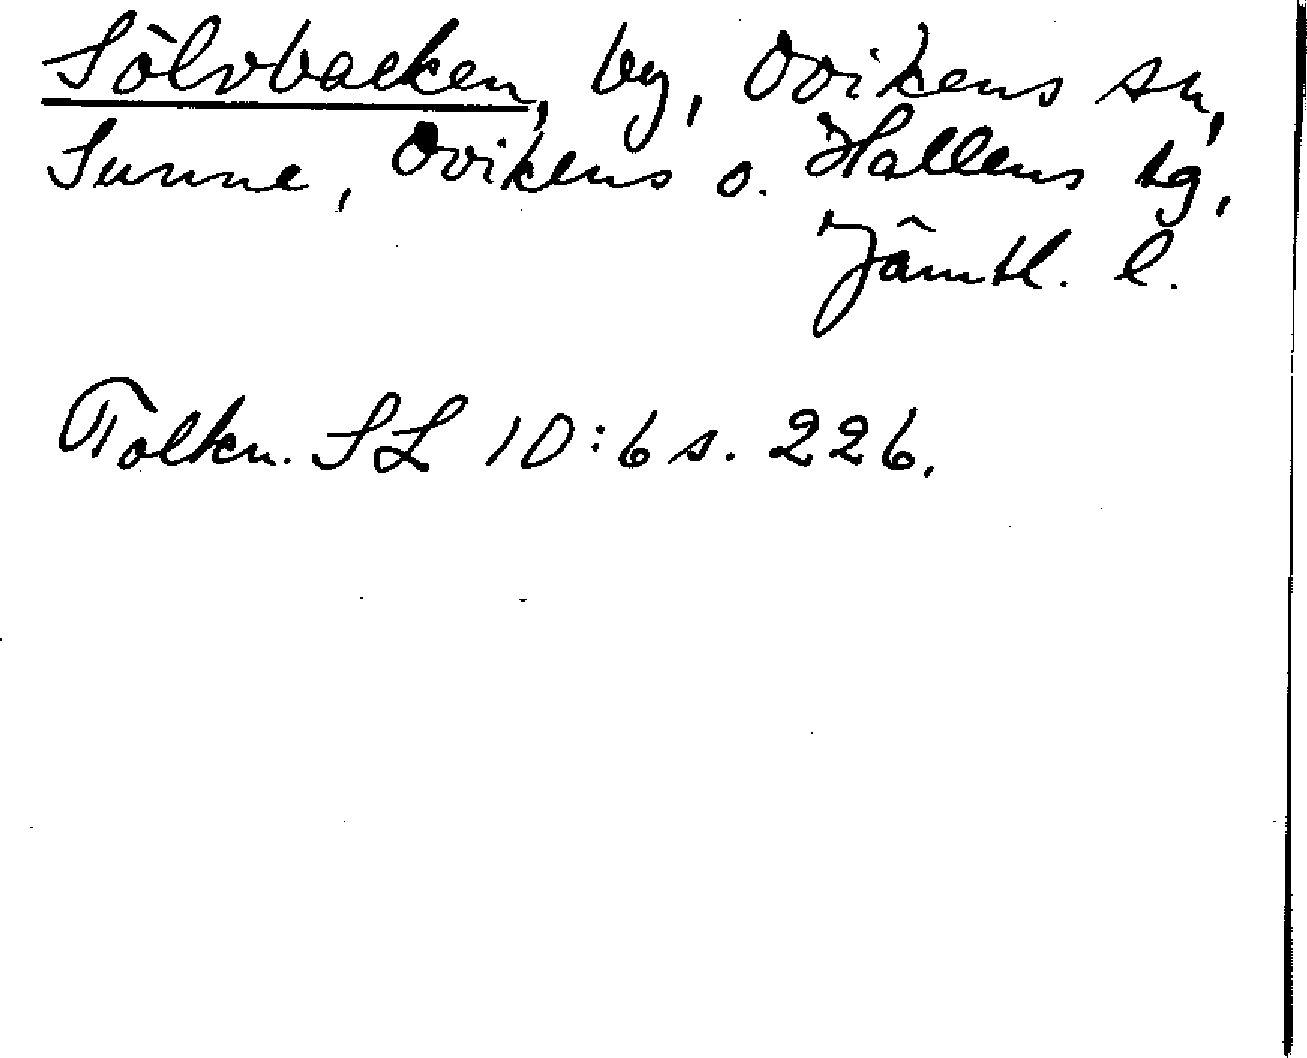 Sölvbacken, by, Ovikens sn,
Sunne, Ovikens o. Hallens tg,
Jämtl. l.
Tolkn. SL 10:6 s. 226.